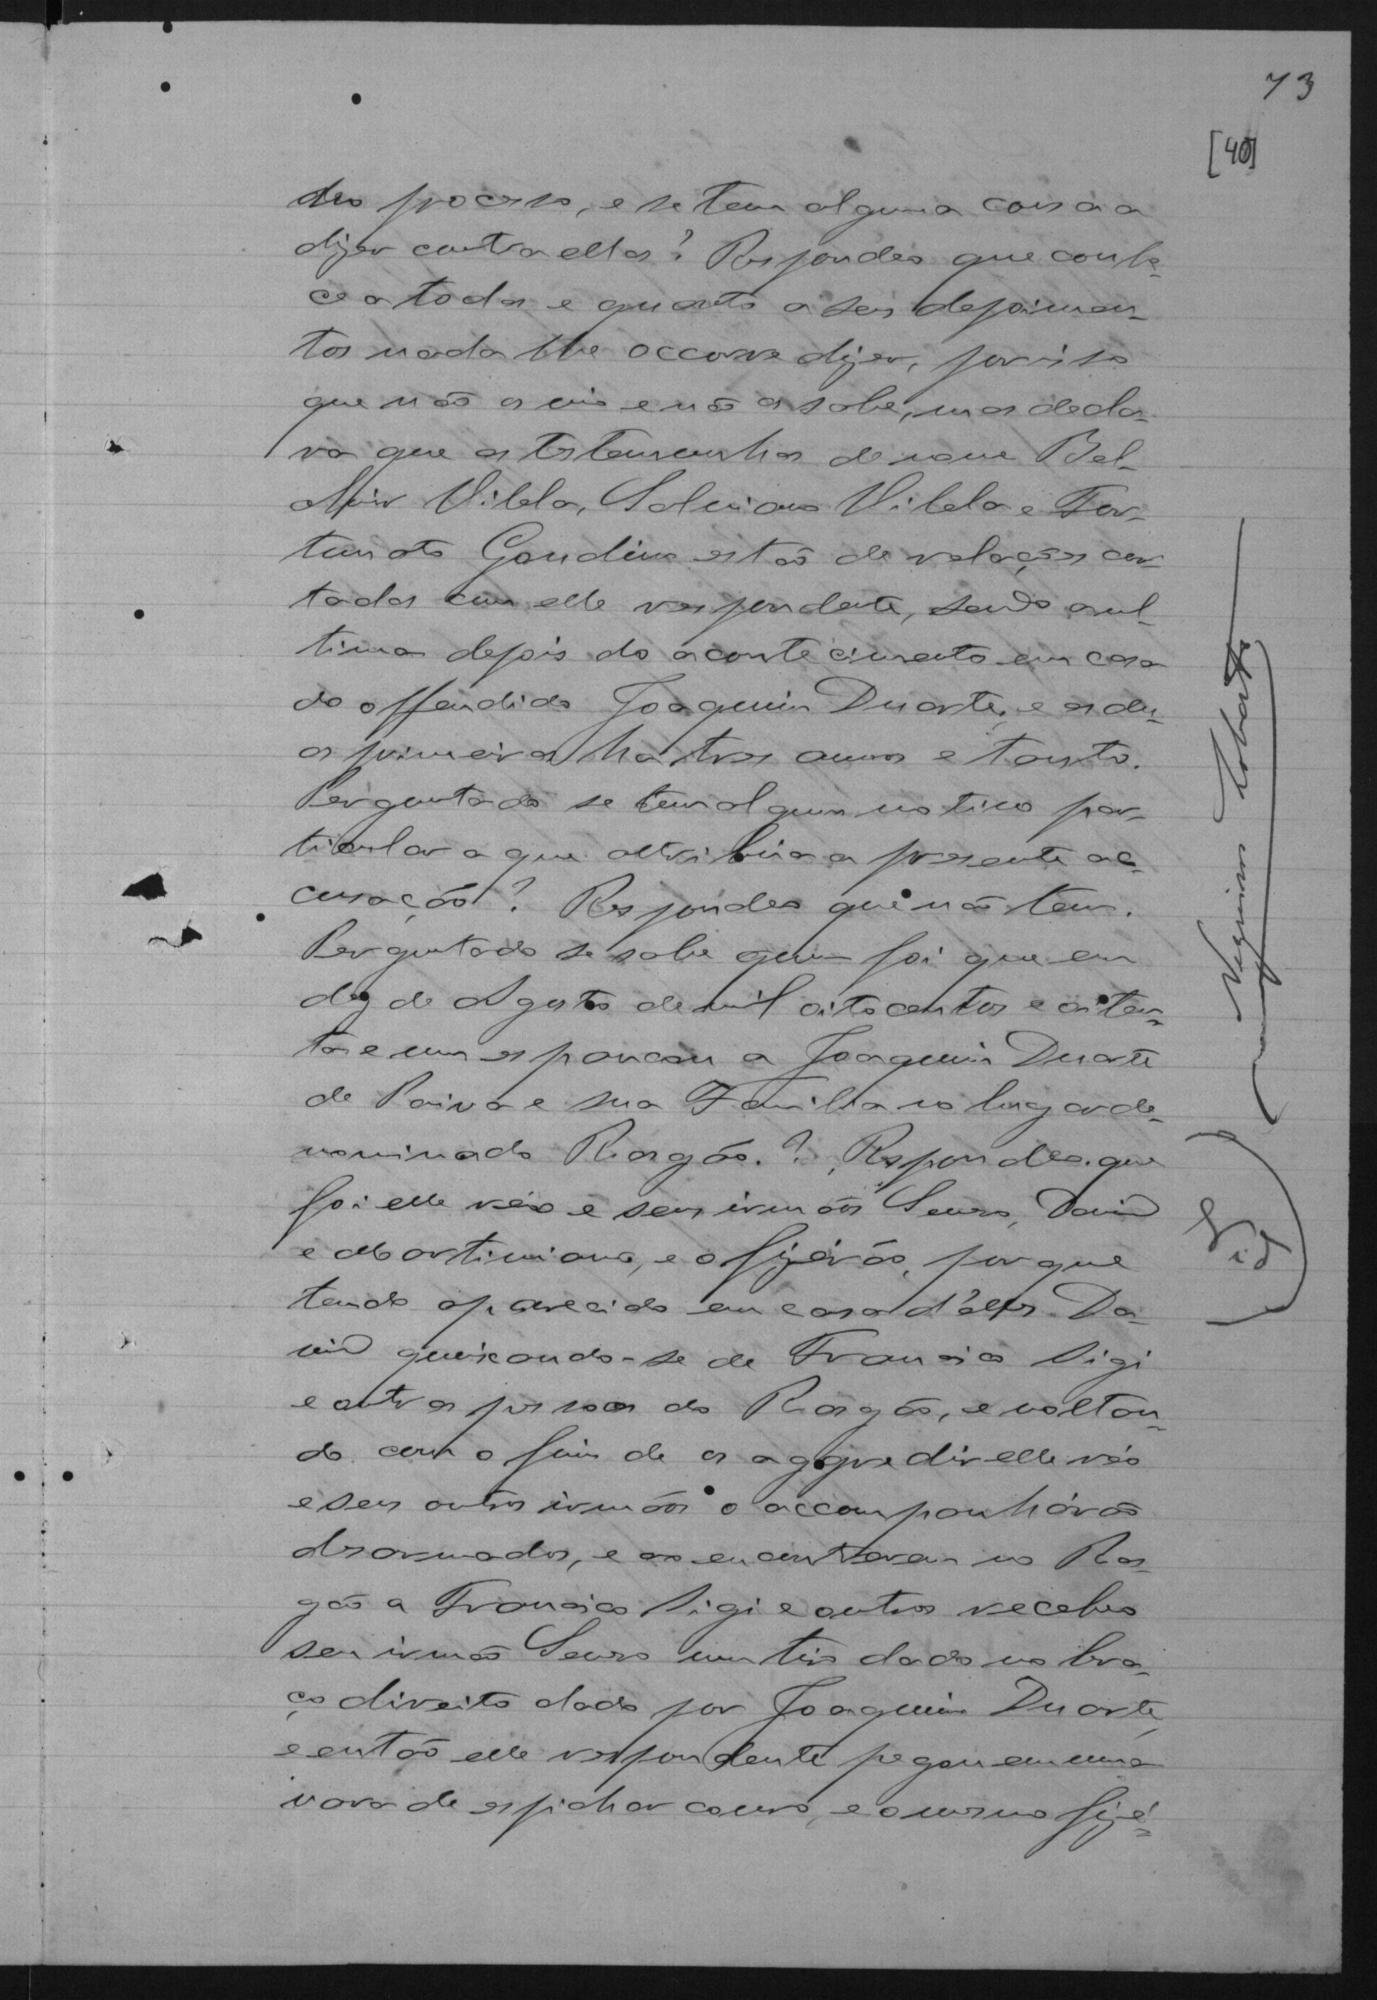 73
[40]
deo processo, e se tem alguma cousa a
dizer contra ellas? Respondeo que conhe-
ce a todas e quanto a seus depoimen-
tos nada lhe occorre dizer, por isso
que não as vio e não as sabe, mas decla-
ra que as testemunhas de nome Bel-
Mir Vilela, Salviano Vilela e For-
tunato Gondim estão de relações cor-
tadas com elle respondente, sendo a ul-
tima depois do acontecimento em casa
do offendido Joaquim Duarte, e as du-
as primeiras ha tres annos e tanto.
Perguntado se tem algum motivo par-
ticular a que attribua a presente ac-
cusação? Respondeo que não tem.
Perguntado se sabe quem foi que em
dez de Agosto de mil oitocentos e oiten-
ta e um espancou a Joaquim Duarte
de Paiva e sua Familia no lugar de-
nominado Rasgão.? Respondeo que
foi elle réo e seus irmãos Lauro, David
e Martiniano, e o fizérão, porque
tendo aparecido em casa d'elles Da-
vid queixando-se de Francisco Gigi
e outras pessoas do Rasgão, e voltan-
do com o fim de os aggredir elle réo
e seus outros irmãos o accompanhárão
desarmados, e ao encontrarem no Ras-
gão a Francisco Gigi e outros recebeo
seu irmão Lauro um tiro dado no bra-
ço direito dado por Joaquim Duarte,
e então elle respondente pegou em uma
vara de espichar couro, e o mesmo fizé-
Roberto